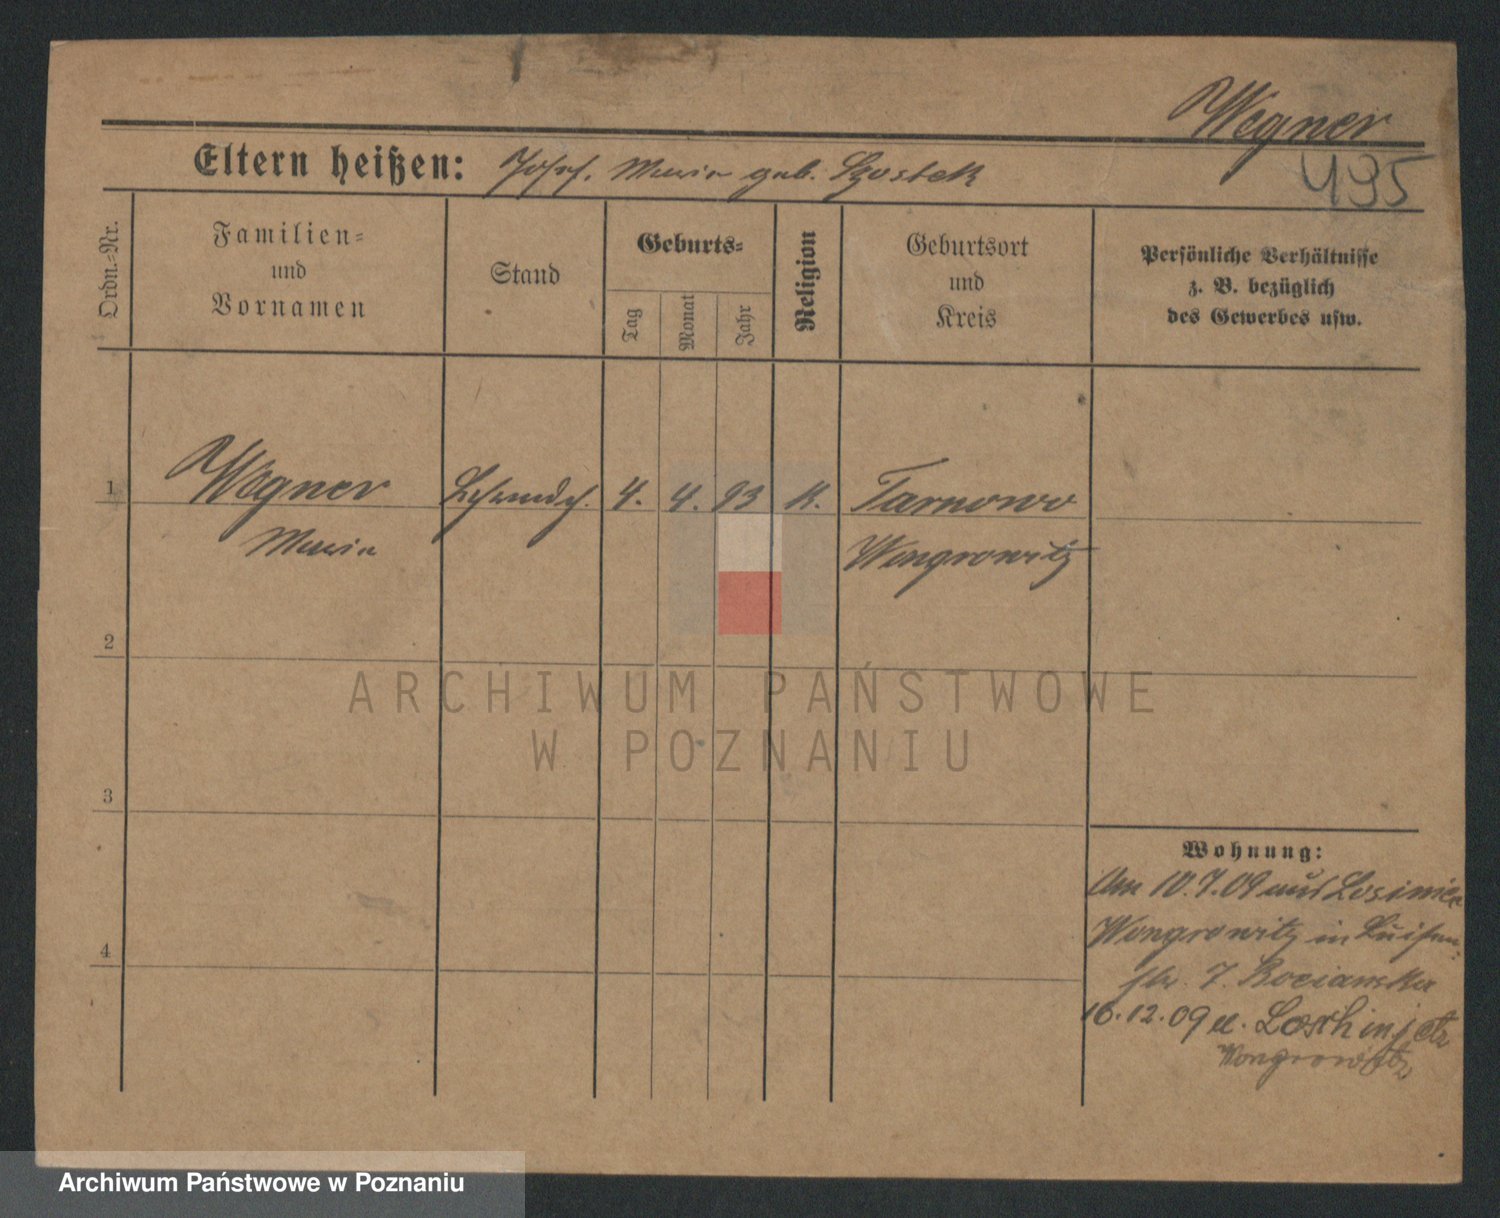 Wegner
495
Eltern heißen: Josef. Maria geb. Szostek
Ordn.-Nr.
Familien-
und
Vornamen
Stand
Geburts-
Tag
Monat
Jahr
Religion
Geburtsort
und
Kreis
Persönliche Verhältnisse
z. B. bezüglich
des Gewerbes usw.
1 Wegner 4. 4. 93 K. Tarnowo
Maria Wongrowitz
2
ARCHIWUM PAŃSTWOWE
W POZNANIU
3
Wohnung:
Am 10.7.09 aus
Wongrowitz in Luisen-
str. 7.
4
16.12.09
Wongrowitz
Archiwum Państwowe w Poznaniu